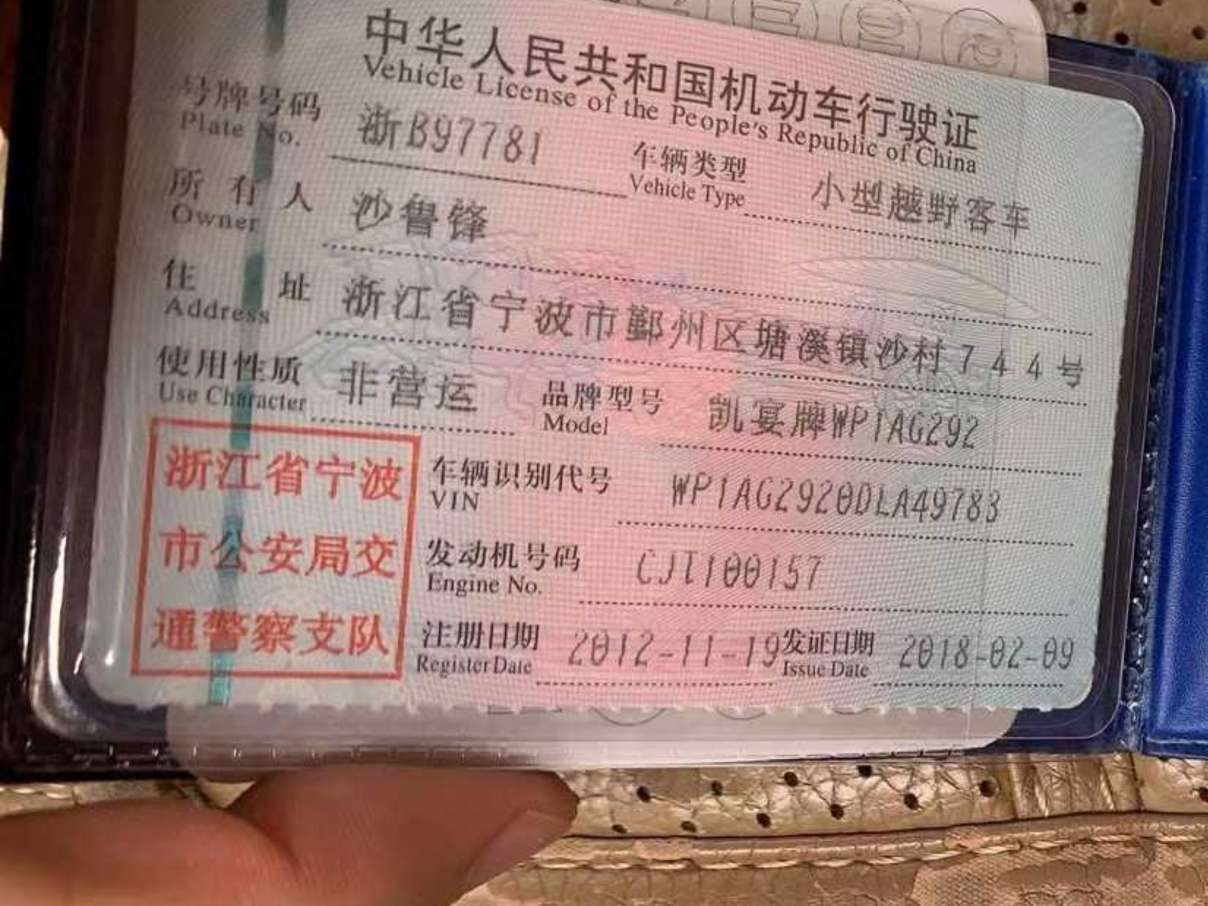 中华人民共和国机动车行驶证
Vehicle License of the People's Republic of China
号牌号码 浙B97781 车辆类型 小型越野客车
Plate No. Vehicle Type
所有人 沙鲁锋
Owner
住址 浙江省宁波市鄞州区塘溪镇沙村744号
Address
使用性质 非营运 品牌型号 凯宴牌WP1AG292
Use Character Model
浙江省宁波
市公安局交
通警察支队
车辆识别代号 WP1AG2920DLA49783
VIN
发动机号码 CJT100157
Engine No.
注册日期 2012-11-19 发证日期 2018-02-09
Register Date Issue Date